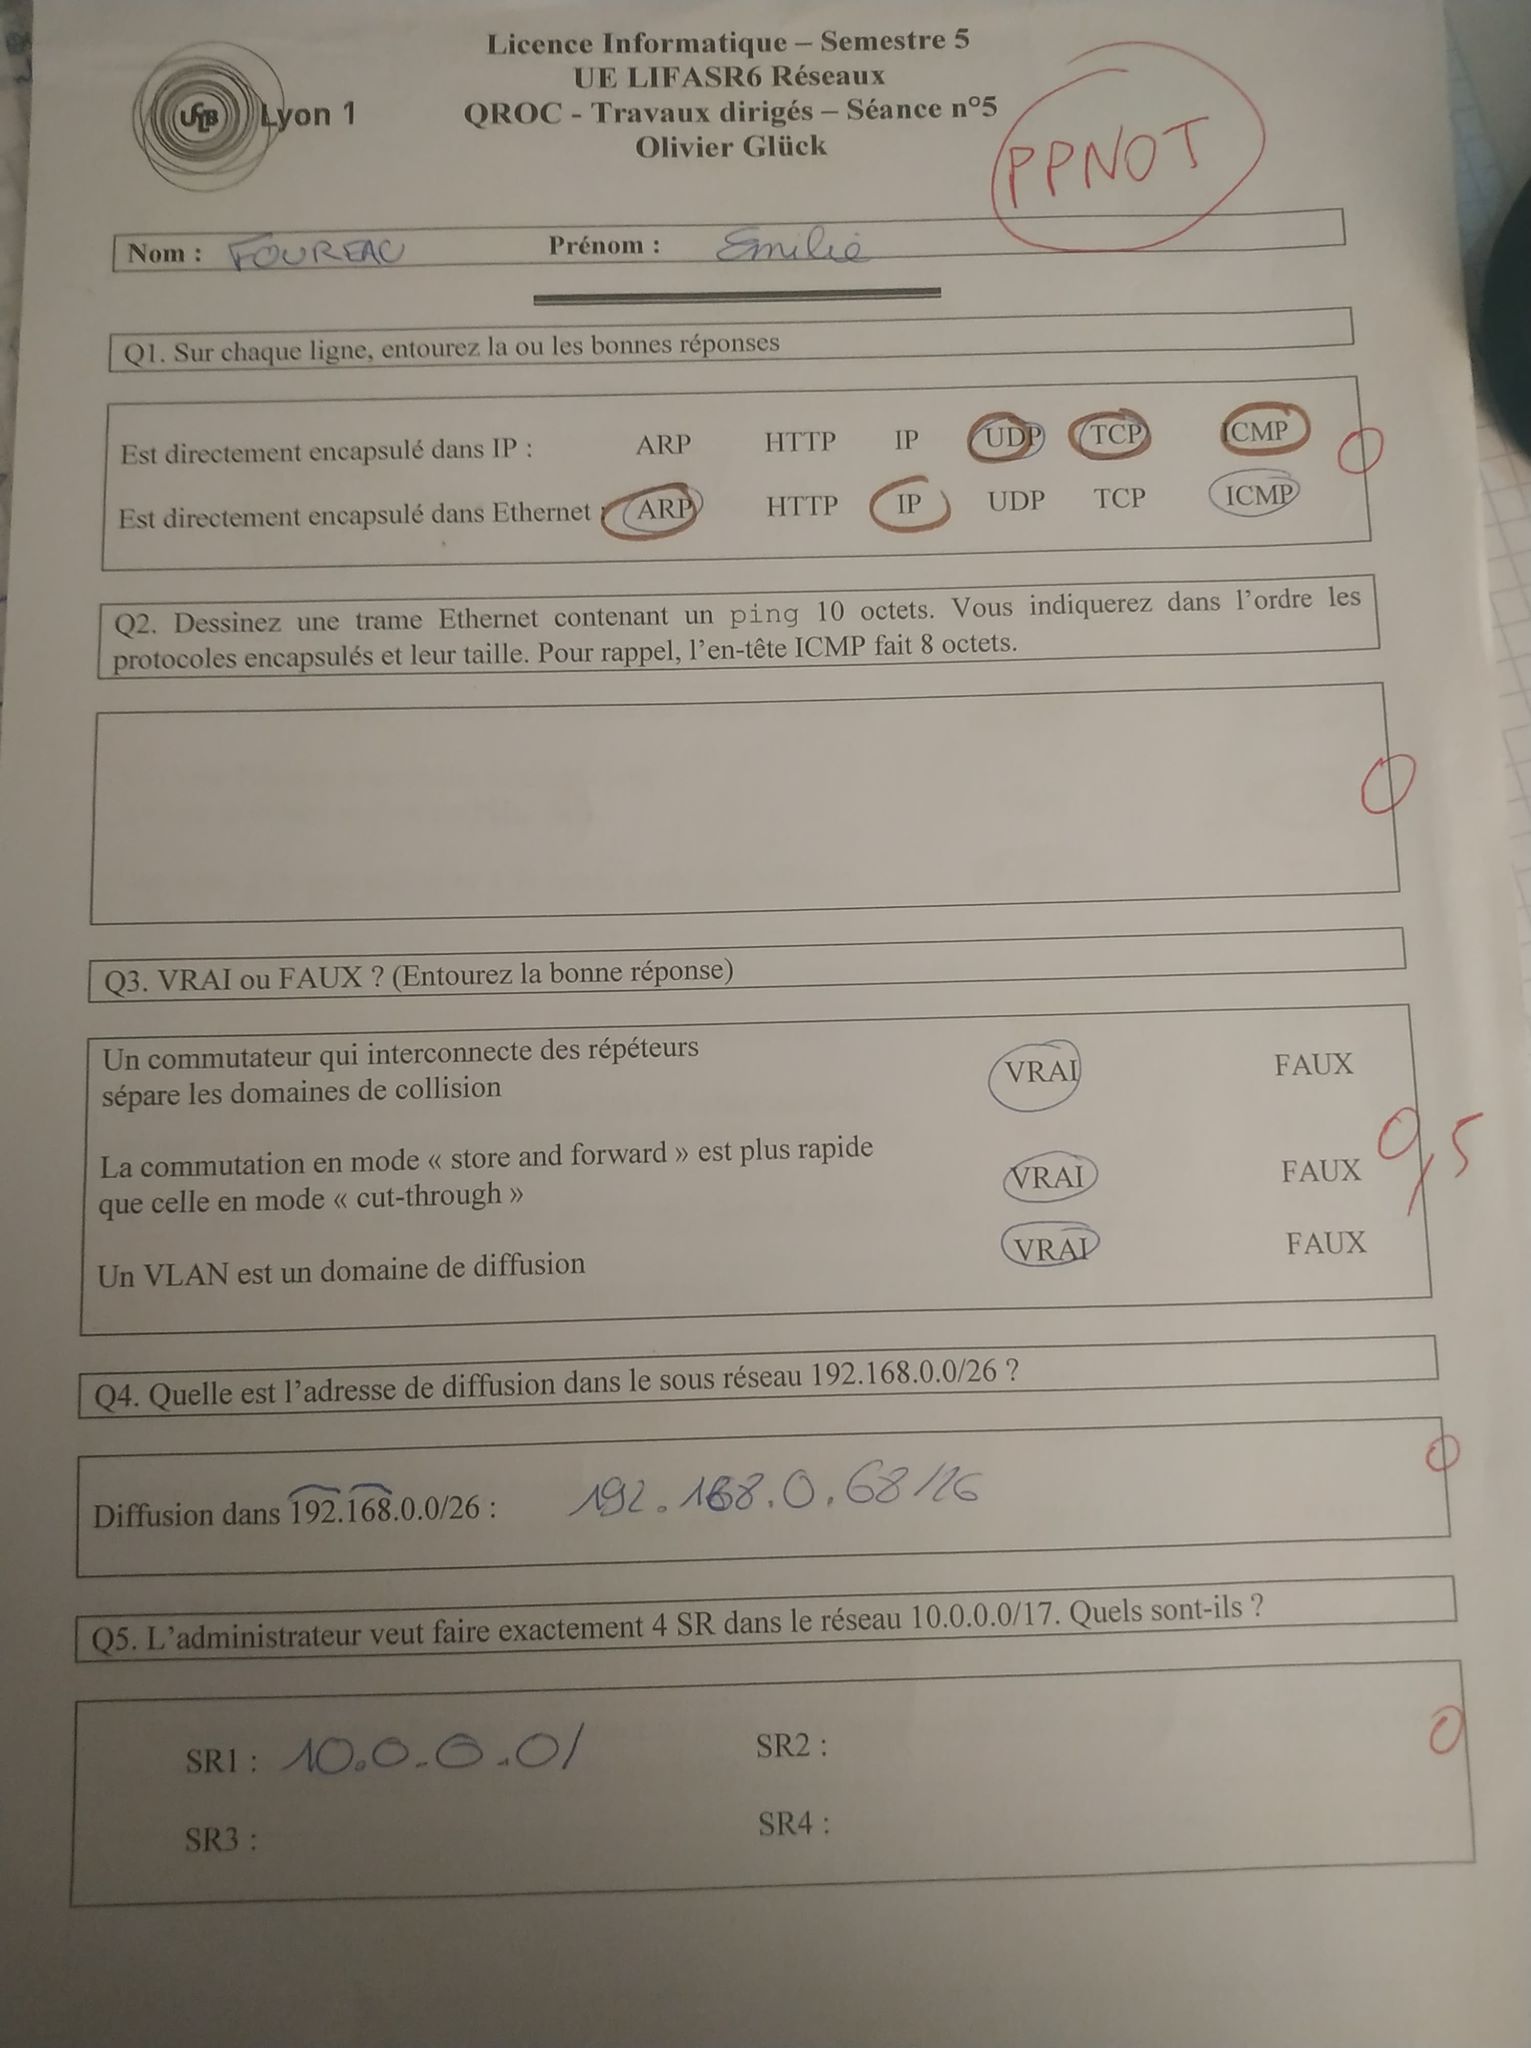 Licence Informatique – Semestre 5
UE LIFASR6 Réseaux
QROC - Travaux dirigés – Séance n°5
Olivier Glück
UCBL Lyon 1
PPNOT
Nom : FOUREAU Prénom : Emilie
Q1. Sur chaque ligne, entourez la ou les bonnes réponses
Est directement encapsulé dans IP : ARP HTTP IP UDP TCP ICMP
0
Est directement encapsulé dans Ethernet : ARP HTTP IP UDP TCP ICMP
Q2. Dessinez une trame Ethernet contenant un ping 10 octets. Vous indiquerez dans l'ordre les
protocoles encapsulés et leur taille. Pour rappel, l'en-tête ICMP fait 8 octets.
0
Q3. VRAI ou FAUX ? (Entourez la bonne réponse)
Un commutateur qui interconnecte des répéteurs
sépare les domaines de collision VRAI FAUX
La commutation en mode « store and forward » est plus rapide
que celle en mode « cut-through » VRAI FAUX
0,5
Un VLAN est un domaine de diffusion VRAI FAUX
Q4. Quelle est l'adresse de diffusion dans le sous réseau 192.168.0.0/26 ?
0
Diffusion dans 192.168.0.0/26 : 192.168.0.68/26
Q5. L'administrateur veut faire exactement 4 SR dans le réseau 10.0.0.0/17. Quels sont-ils ?
0
SR1 : 10.0.0.0/ SR2 :
SR3 : SR4 :